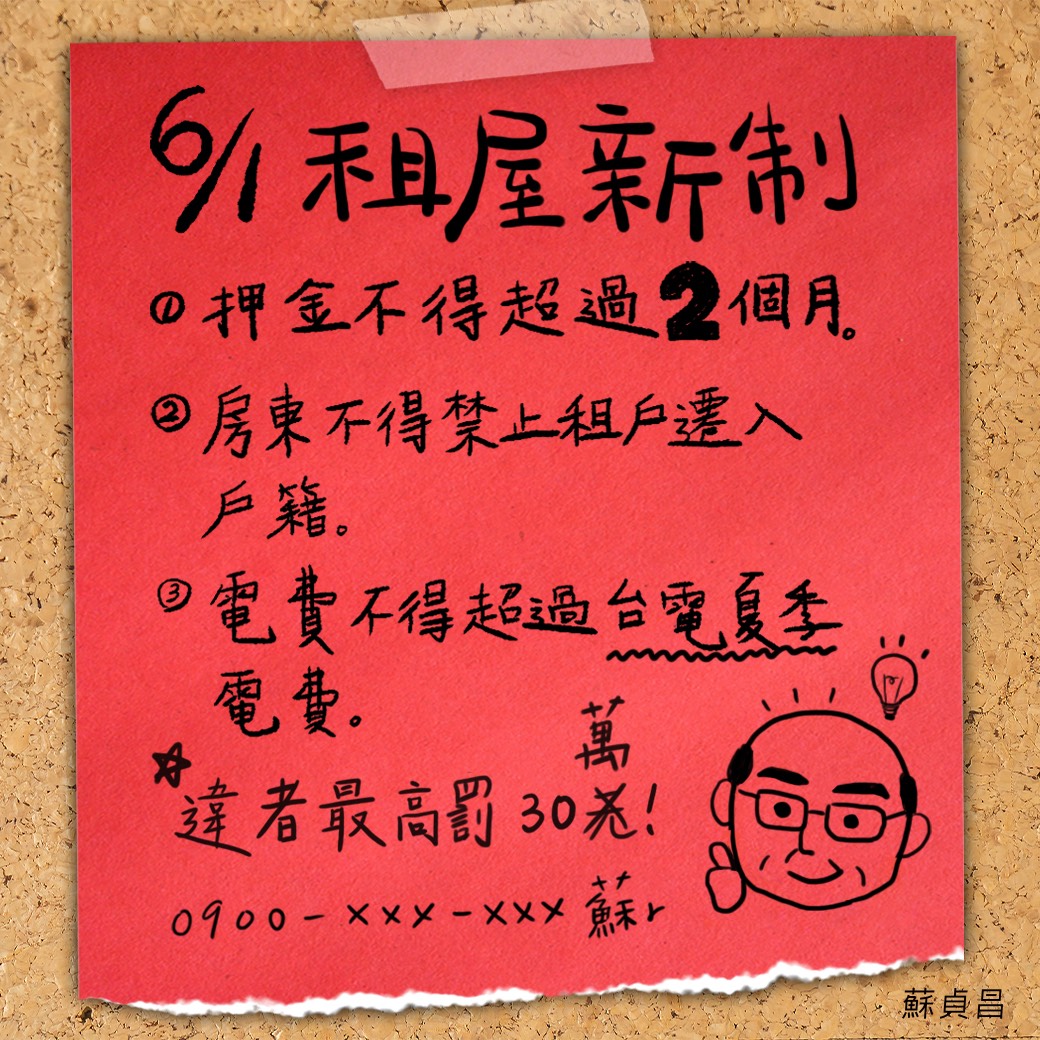 6/1 租屋新制
① 押金不得超過2個月。
② 房東不得禁止租戶遷入
戶籍。
③ 電費不得超過台電夏季
電費。
☆違者最高罰 30萬!
0900-xxx-xxx 蘇r
蘇貞昌